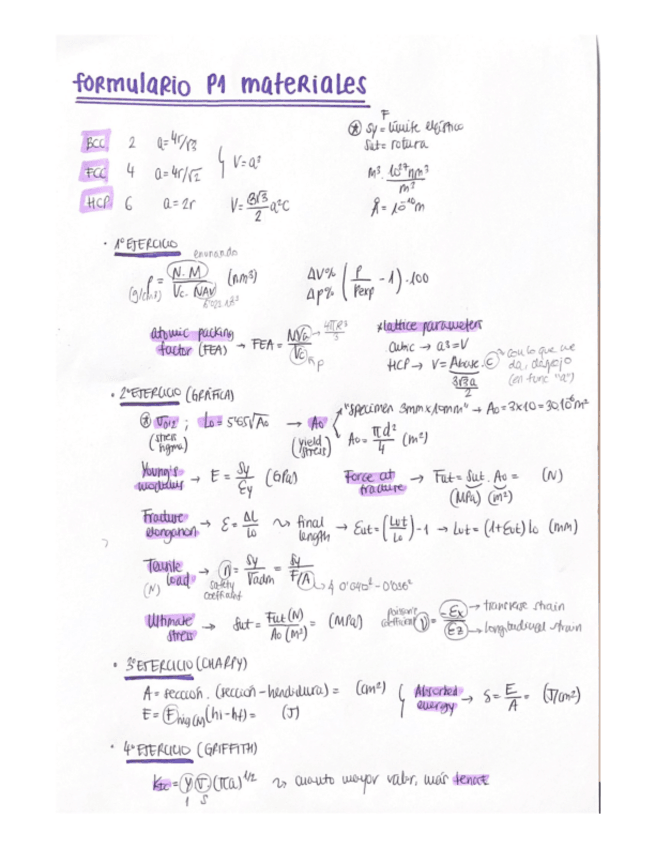 formulario P1 materiales
BCC 2 a=4r/√3
FCC 4 a=4r/√2 V=a³
HCP 6 a=2r V=3√3/2 a²C
F
* Sy = límite elástico
Sut = rotura
m³ · 10²⁷nm³/m³
Å = 10⁻¹⁰m
· 1º EJERCICIO
ρ = N.M/Vc.NAV (nm³)
(g/cm³)
ΔV% (ρ/ρexp -1).100
Δρ%
atomic packing factor (FEA) → FEA =
4πR³/3
* lattice parameters
cubic → a³=V
HCP → V= Abase.C
con lo que me da, despejo (en func "a")
· 2º EJERCICIO (GRÁFICA)
* σ0'2 ; Lo = 5'65√Ao → Ao
(stress sigma)
(yield stress)
"Specimen 3mm x 10mm" → Ao = 3x10 = 30.10⁻⁶m²
Ao = πd²/4 (m²)
Young's modulus → E = Sy/Ey (GPa)
Force at fracture → Fut = Sut . Ao = (N)
(MPa) (m²)
Fracture elongation → ε = ΔL/Lo ⤳ final length → Eut = (Lut/Lo) -1 → Lut = (1+Eut) lo (mm)
Tensile load → n = Sy/σadm = Sy/F/A
(N)
safety coefficient
Ultimate stress → Sut = Fut (N)/Ao (m²) = (MPa)
poisson's coefficient ν = -Ex/Ez → transverse strain
→ longitudinal strain
· 3º EJERCICIO (CHARPY)
A = sección . (sección - hendidura) = (cm²)
E = (hi-hf) = (J)
Absorbed energy → δ = E/A = (J/cm²)
· 4º EJERCICIO (GRIFFITH)
KIC = Y σ (πa)^1/2 ⤳ cuanto mayor valor, más tenaz
1 S